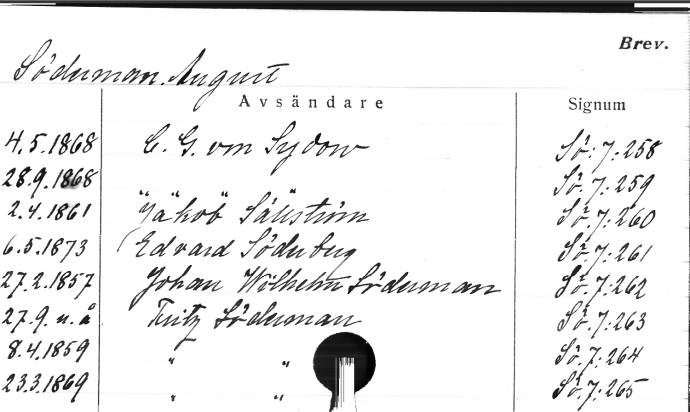 Brev.
Söderman, August
Avsändare Signum
4.5.1868 C. G. von Sydow Sö. 7:258
28.9.1868 " " " Sö. 7:259
2.4.1861 Jakob Sällström Sö. 7:260
6.5.1873 Edvard Söderberg Sö. 7:261
27.2.1857 Johan Wilhelm Söderman Sö. 7:262
27.9. u. å Fritz Söderman Sö. 7:263
8.4.1859 " " Sö. 7:264
23.3.1869 " " Sö. 7:265